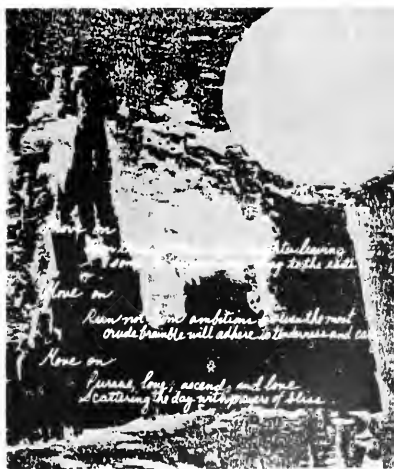 Move on
leaving
to the exits
Move on
Run not from ambitions for even the most
crude bramble will adhere to tenderness and
Move on
Pursue, love, ascend, and love
Scattering the day with prayers of bliss.